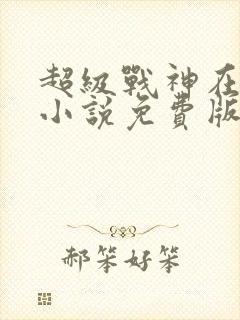 超級戰神在
小說免費版
郝笨好笨